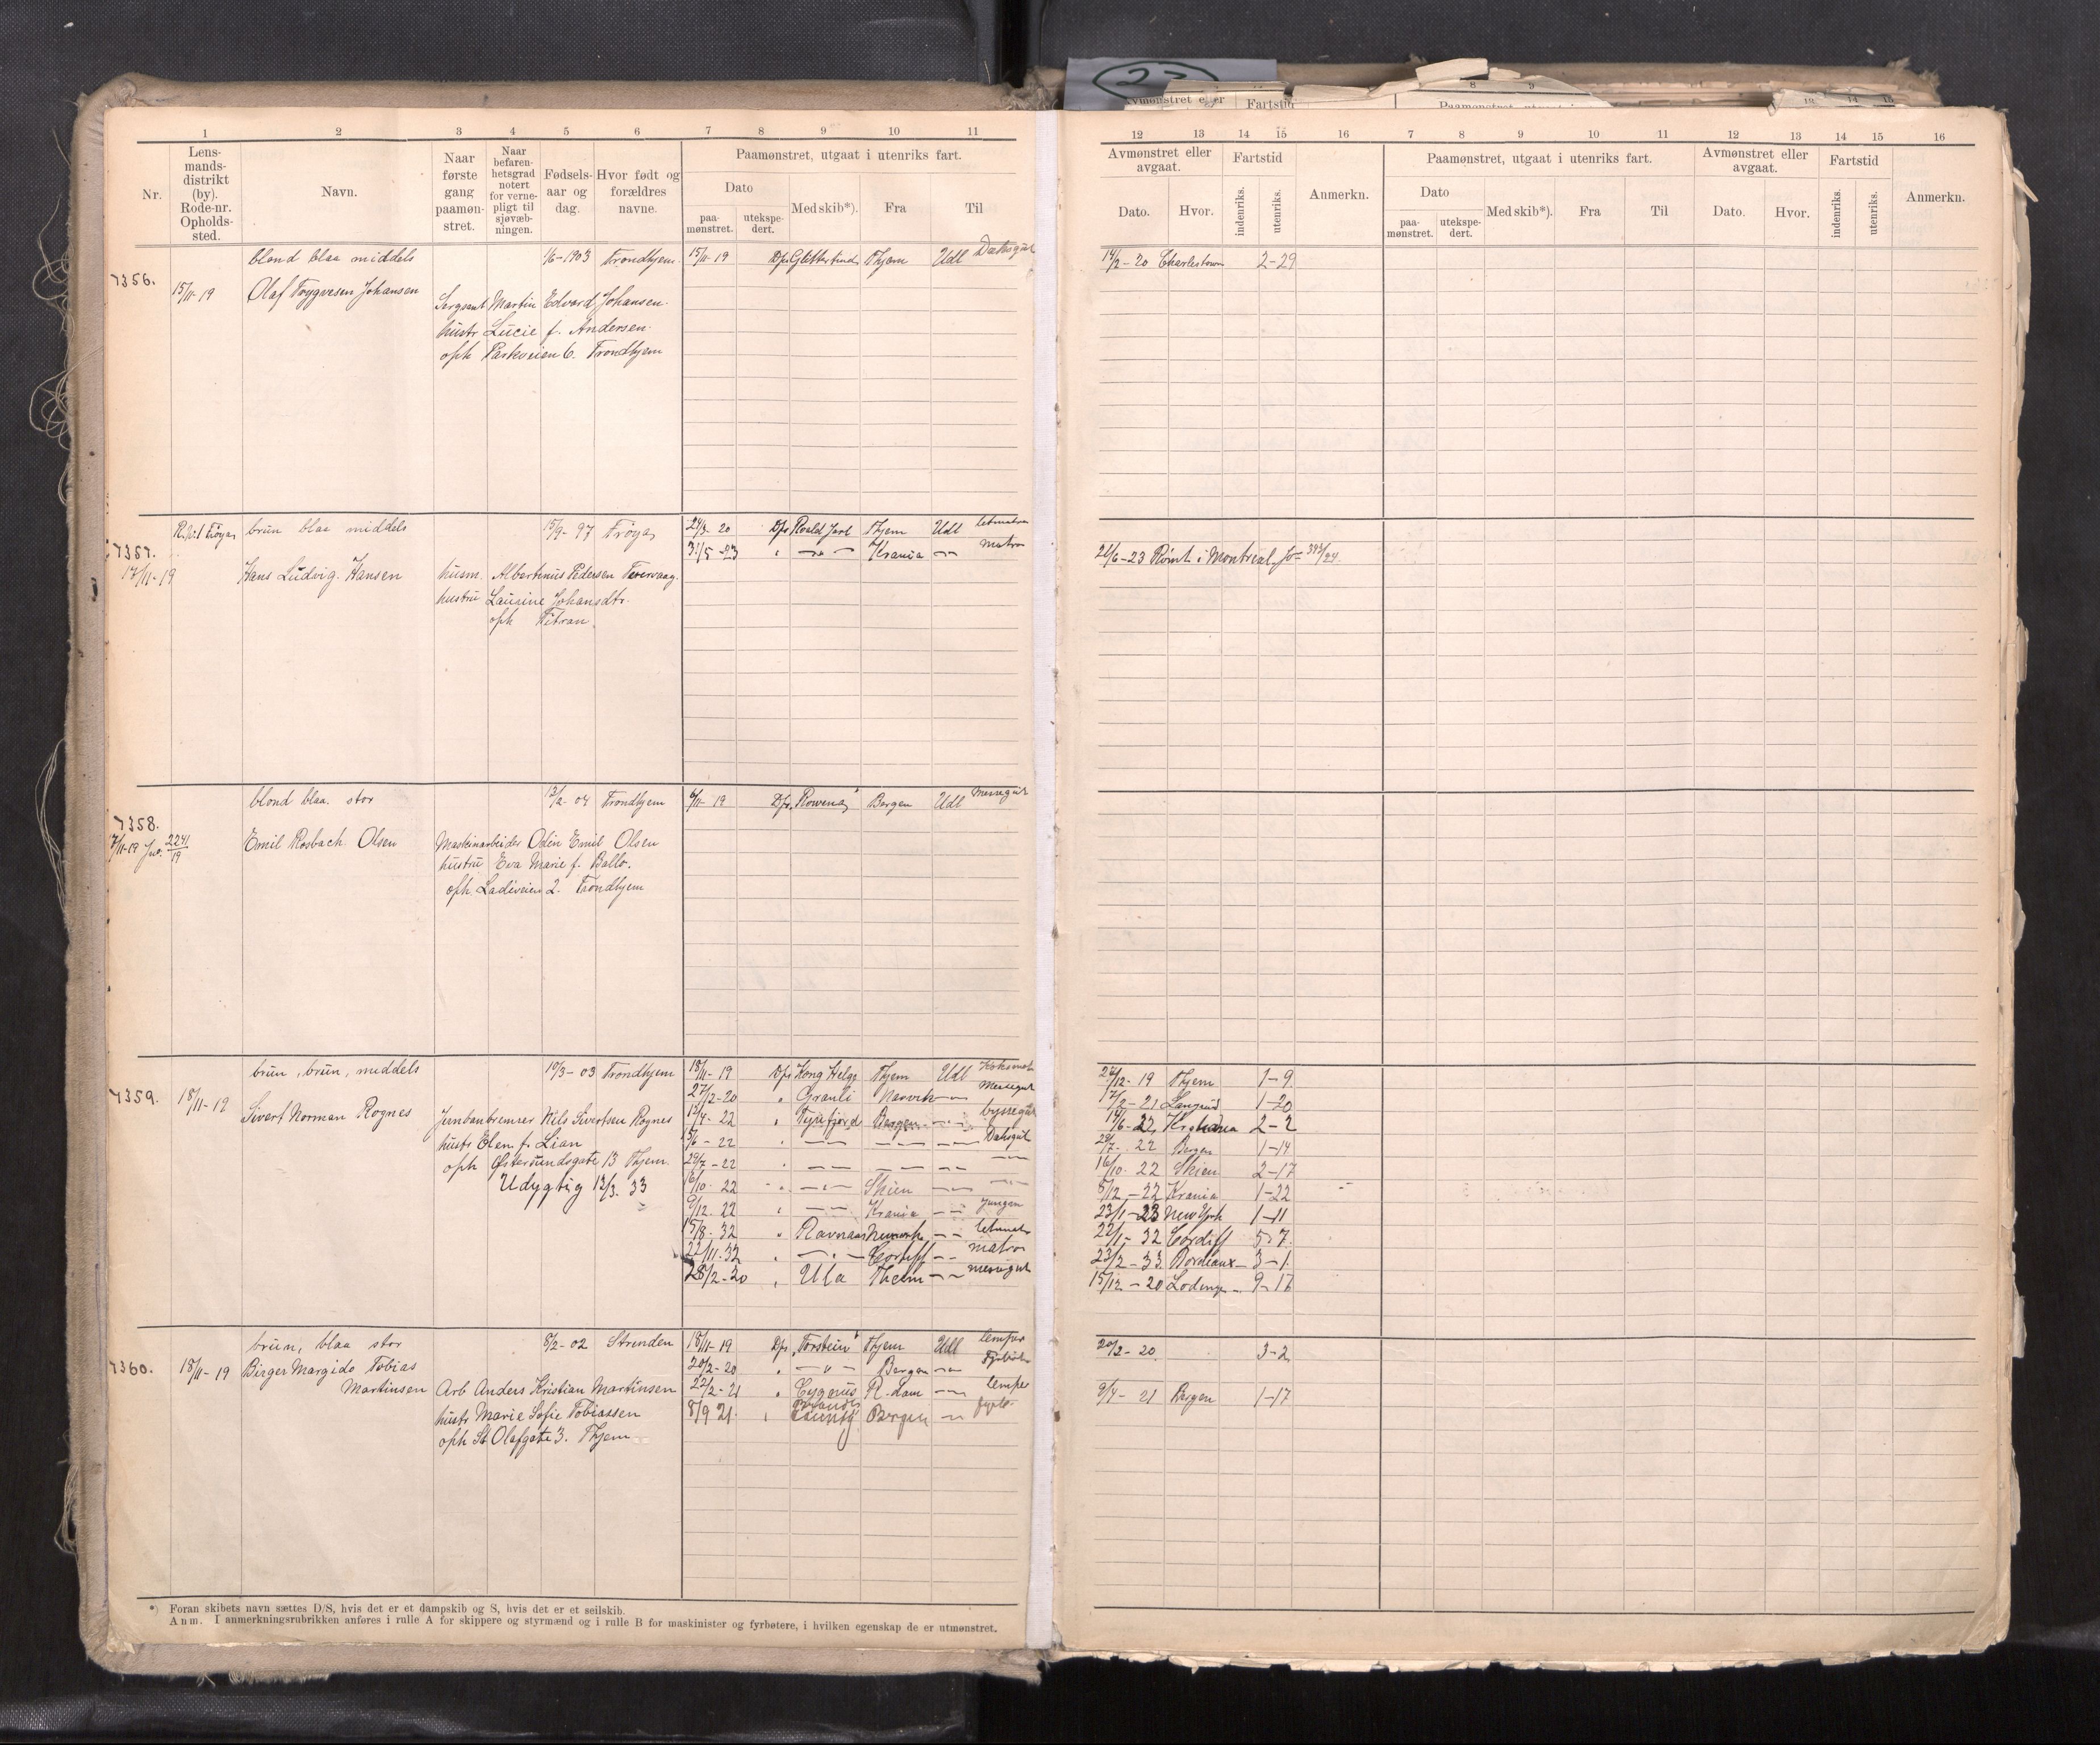 23
Avmønstret eller Fartstid
8 9
Paamønstret, utgaat i
13 14 15
1 2 3 4 5 6 7 8 9 10 11
Nr.
Lens-
mands-
distrikt
(by).
Rode-nr.
Opholds-
sted.
Navn.
Naar
første
gang
paamøn-
stret.
Naar
befaren-
hetsgrad
notert
for verne-
pligt til
sjøvæb-
ningen.
Fødsels-
aar og
dag.
Hvor født og
forældres
navne.
Paamønstret, utgaat i utenriks fart.
Dato
paa-
mønstret.
utekspe-
dert.
Med skib*).
Fra
Til
12 13 14 15 16 7 8 9 10 11 12 13 14 15 16
Avmønstret eller
avgaat.
Dato.
Hvor.
Fartstid
indenriks.
utenriks.
Anmerkn.
Paamønstret, utgaat i utenriks fart.
Dato
paa-
mønstret.
utekspe-
dert.
Med skib*).
Fra
Til
Avmønstret eller
avgaat.
Dato.
Hvor.
Fartstid
indenriks.
utenriks.
Anmerkn.
blond blaa middels 1/6-1903 Trondhjem 15/11-19 Dps Glittertind Thjem Udl Dæksgut 14/2-20 Charlestown 2-29
7356.
15/11-19 Olaf Trygvesen Johansen
Sergeant Martin Edvard Johansen.
hustr Lucie f. Andersen.
oph Parkveien 6. Trondhjem
Frøya brun blaa middels 15/9-97 Frøya 24/3-20 Dps Roald Jarl Thjem Udl letmatros
7357. 31/5-23 " — " — Krania — matros 21/6-23 Rømt i Montreal Jo 393/24.
17/11-19 Hans Ludvig Hansen
husm. Albertinus Pedersen
hustru Laurine Johansdtr.
oph Titran.
blond blaa. stor 13/2-04 Trondhjem 6/11-19 Dps "Rowena" Bergen Udl Messegut
7358.
17/11-19 Jno. 2241/19 Emil Rosbach Olsen
Maskinarbeider Odin Emil Olsen
hustru Eva Marie f. Ballo.
oph. Ladeveien 2. Trondhjem
brun, brun, middels 10/3-03 Trondhjem 18/11-19 Dps Kong Helge Thjem Udl Koksmat 24/12-19 Thjem 1-9
7359. 18/11-19 27/12-20 " Granli Narvik — Messegut 17/2-21 1-20
Sivert Norman Rognes 13/4-22 " Tyrifjord Bergen — byssegut 14/6-22 Krania 2-2
Jernbanbremser Nils Sivertsen Rognes 15/6-22 " — — — Dæksgut 28/7-22 Bergen 1-14
hustr Elen f. Lian 29/7-22 " — — — — 16/10-22 Skien 2-17
oph Østersundsgate 13 Thjem. 16/10-22 " — Skien — — 8/12-22 Krania 1-22
Udygtig 13/3. 33 9/12-22 " — Krania — Jungm 23/1-23 New York 1-11
15/8-32 " Ravnaas Newcastle — letmatr 22/11-32 Cardiff 5-7
22/11-32 " — " — Cardiff — matros 23/2-33 Bordeaux 3-1
28/2-20 " Ula Thelm — messegut 15/12-20 Lodingen 9-17
brun, blaa stor 8/2-02 Strinden 18/11-19 Dps "Torstein" Thjem Udl lemper 20/2-20 3-2
7360. 18/11-19 Birger Margido Tobias Martinsen 20/2-20 " — " — Bergen — Fyrbøter
Arb Anders Kristian Martinsen 22/2-21 " Cygnus R.dam — lemper 9/4-21 Bergen 1-17
hustr Marie Sofie Tobiassen 8/9 21 " County Bergen — fyrb.
oph St Olafsgate 3. Thjem
*) Foran skibets navn sættes D/S, hvis det er et dampskib og S, hvis det er et seilskib.
Anm. I anmerkningsrubrikken anføres i rulle A for skippere og styrmænd og i rulle B for maskinister og fyrbøtere, i hvilken egenskap de er utmønstret.